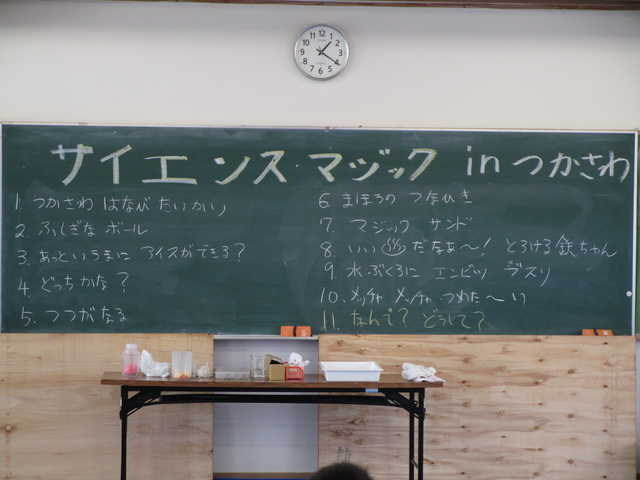 サイエンス・マヅック in つかさわ
1. つかさわ はなび たいかい
2. ふしぎな ボール
3. あっというまに アイスができる?
4. どっちかな?
5. つつがなる
6. まほうの つなひき
7. マジック サンド
8. いい♨だなぁ〜! とろける鉄ちゃん
9. 水ぶくろに エンピツ ブスリ
10. メッチャ メッチャ つめた〜い
11. なんで? どうして?
12 1 2 3 4 5 6 7 8 9 10 11